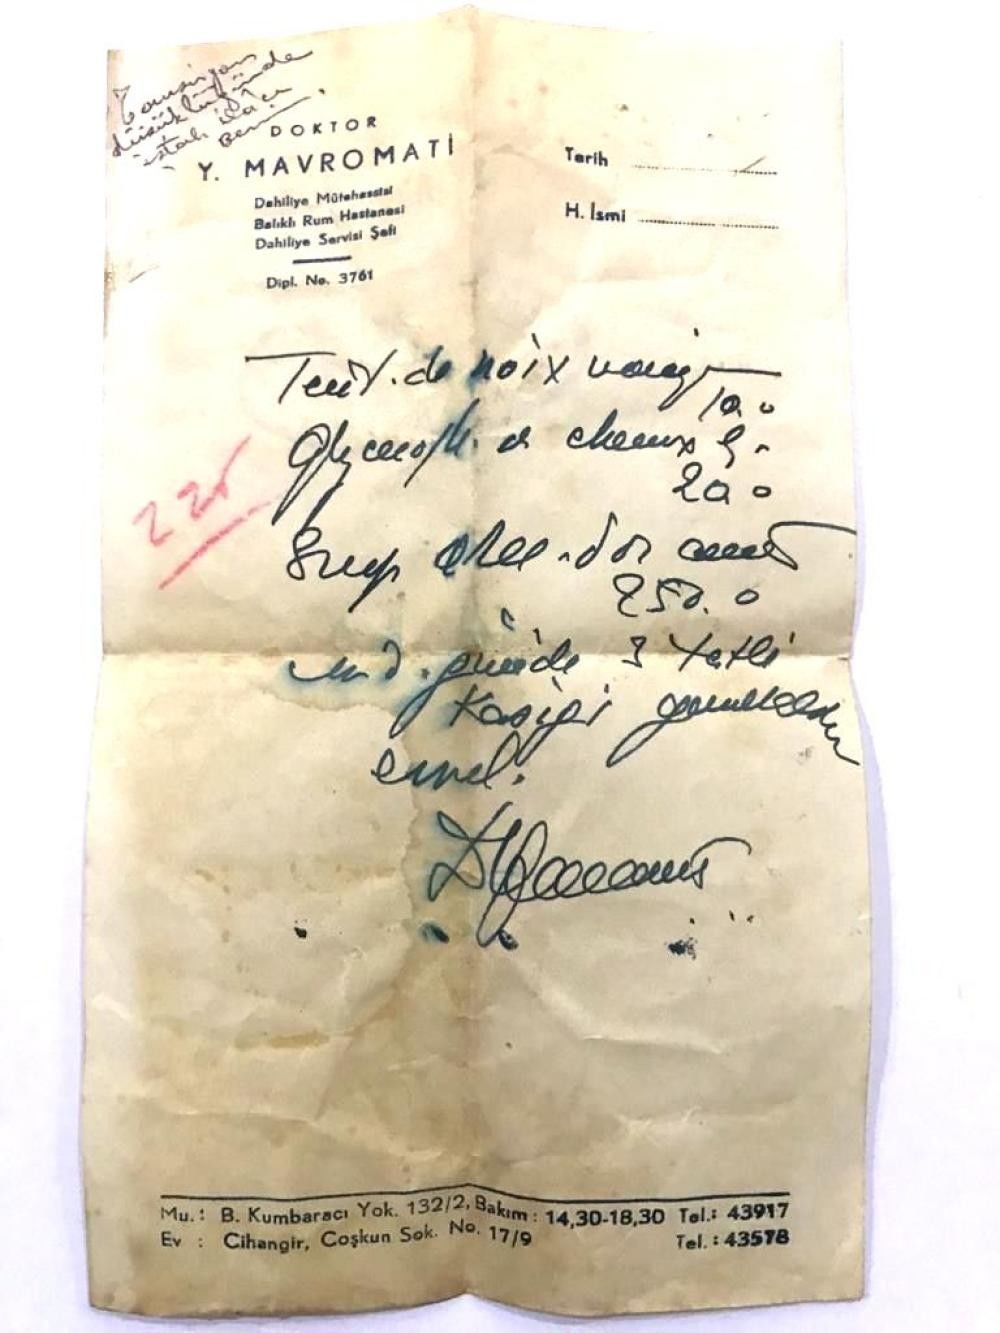 Tansiyon
düşüklüğünde
iştah ilâcı
DOKTOR
Y. MAVROMATİ
Dahiliye Mütehassisi
Balıklı Rum Hastanesi
Dahiliye Servisi Şefi
Dipl. No. 3761
Tarih
H. İsmi
Teint. de noix vomiq
10.0
Glyceroph. de chaux 5.
20.0
225
Sirop d'or amer
250.0
günde 3 tatlı
Kaşıği yemekleden
evvel.
Mu.: B. Kumbaracı Yok. 132/2, Bakım: 14,30-18,30 Tel.: 43917
Ev : Cihangir, Coşkun Sok. No. 17/9 Tel.: 43578